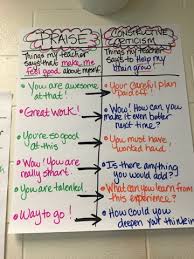 PRAISE
Things my teacher
says that make me
feel good about myself
• You are awesome
at that!
• Great work!
• You're so good
at this
• Wow! You are
really smart.
• You are talented.
• Way to go!
CONSTRUCTIVE
CRITICISM
Things my teacher
says to Help my
brain grow
• Your careful plan
paid off!
• Wow! How can you
make it even better
next time?
• You must have
worked hard!
• Is there anything
you would add?
• What can you learn from
this experience?
• How could you
deepen your thinking